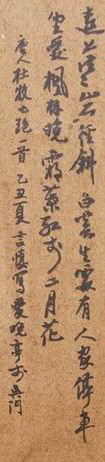 遠上寒山石徑斜白雲生處有人家停車
坐愛楓林晚霜葉紅於二月花
唐人杜牧七絕一首乙丑夏言慎寫愛晚亭於吳門